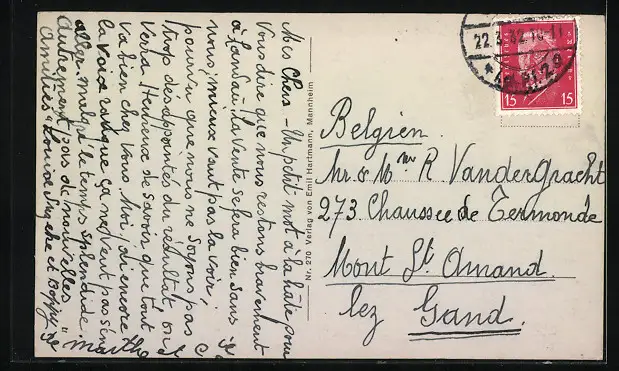 Mes Chers - Un petit mot à la hâte pour
vous dire que nous restons bravement
à Landau. La vente se fera bien sans
nous, mieux vaut pas la voir,
pourvu que nous ne soyons pas
trop désapointés du résultat, on
verra. Heureux de savoir que tout
va bien chez vous. Moi, ai encore
la voix rauque ça ne veut pas s'en
aller, malgré le temps splendide.
Autrement pas de nouvelles
Amitiés
Marthe
Nr. 270 Verlag von Emil Hartmann, Mannheim
22.3.32.10-11
15 15
Belgien.
Mr & Mme R. Vandergracht
273 Chaussée de Termonde
Mont St. Amand.
lez Gand.